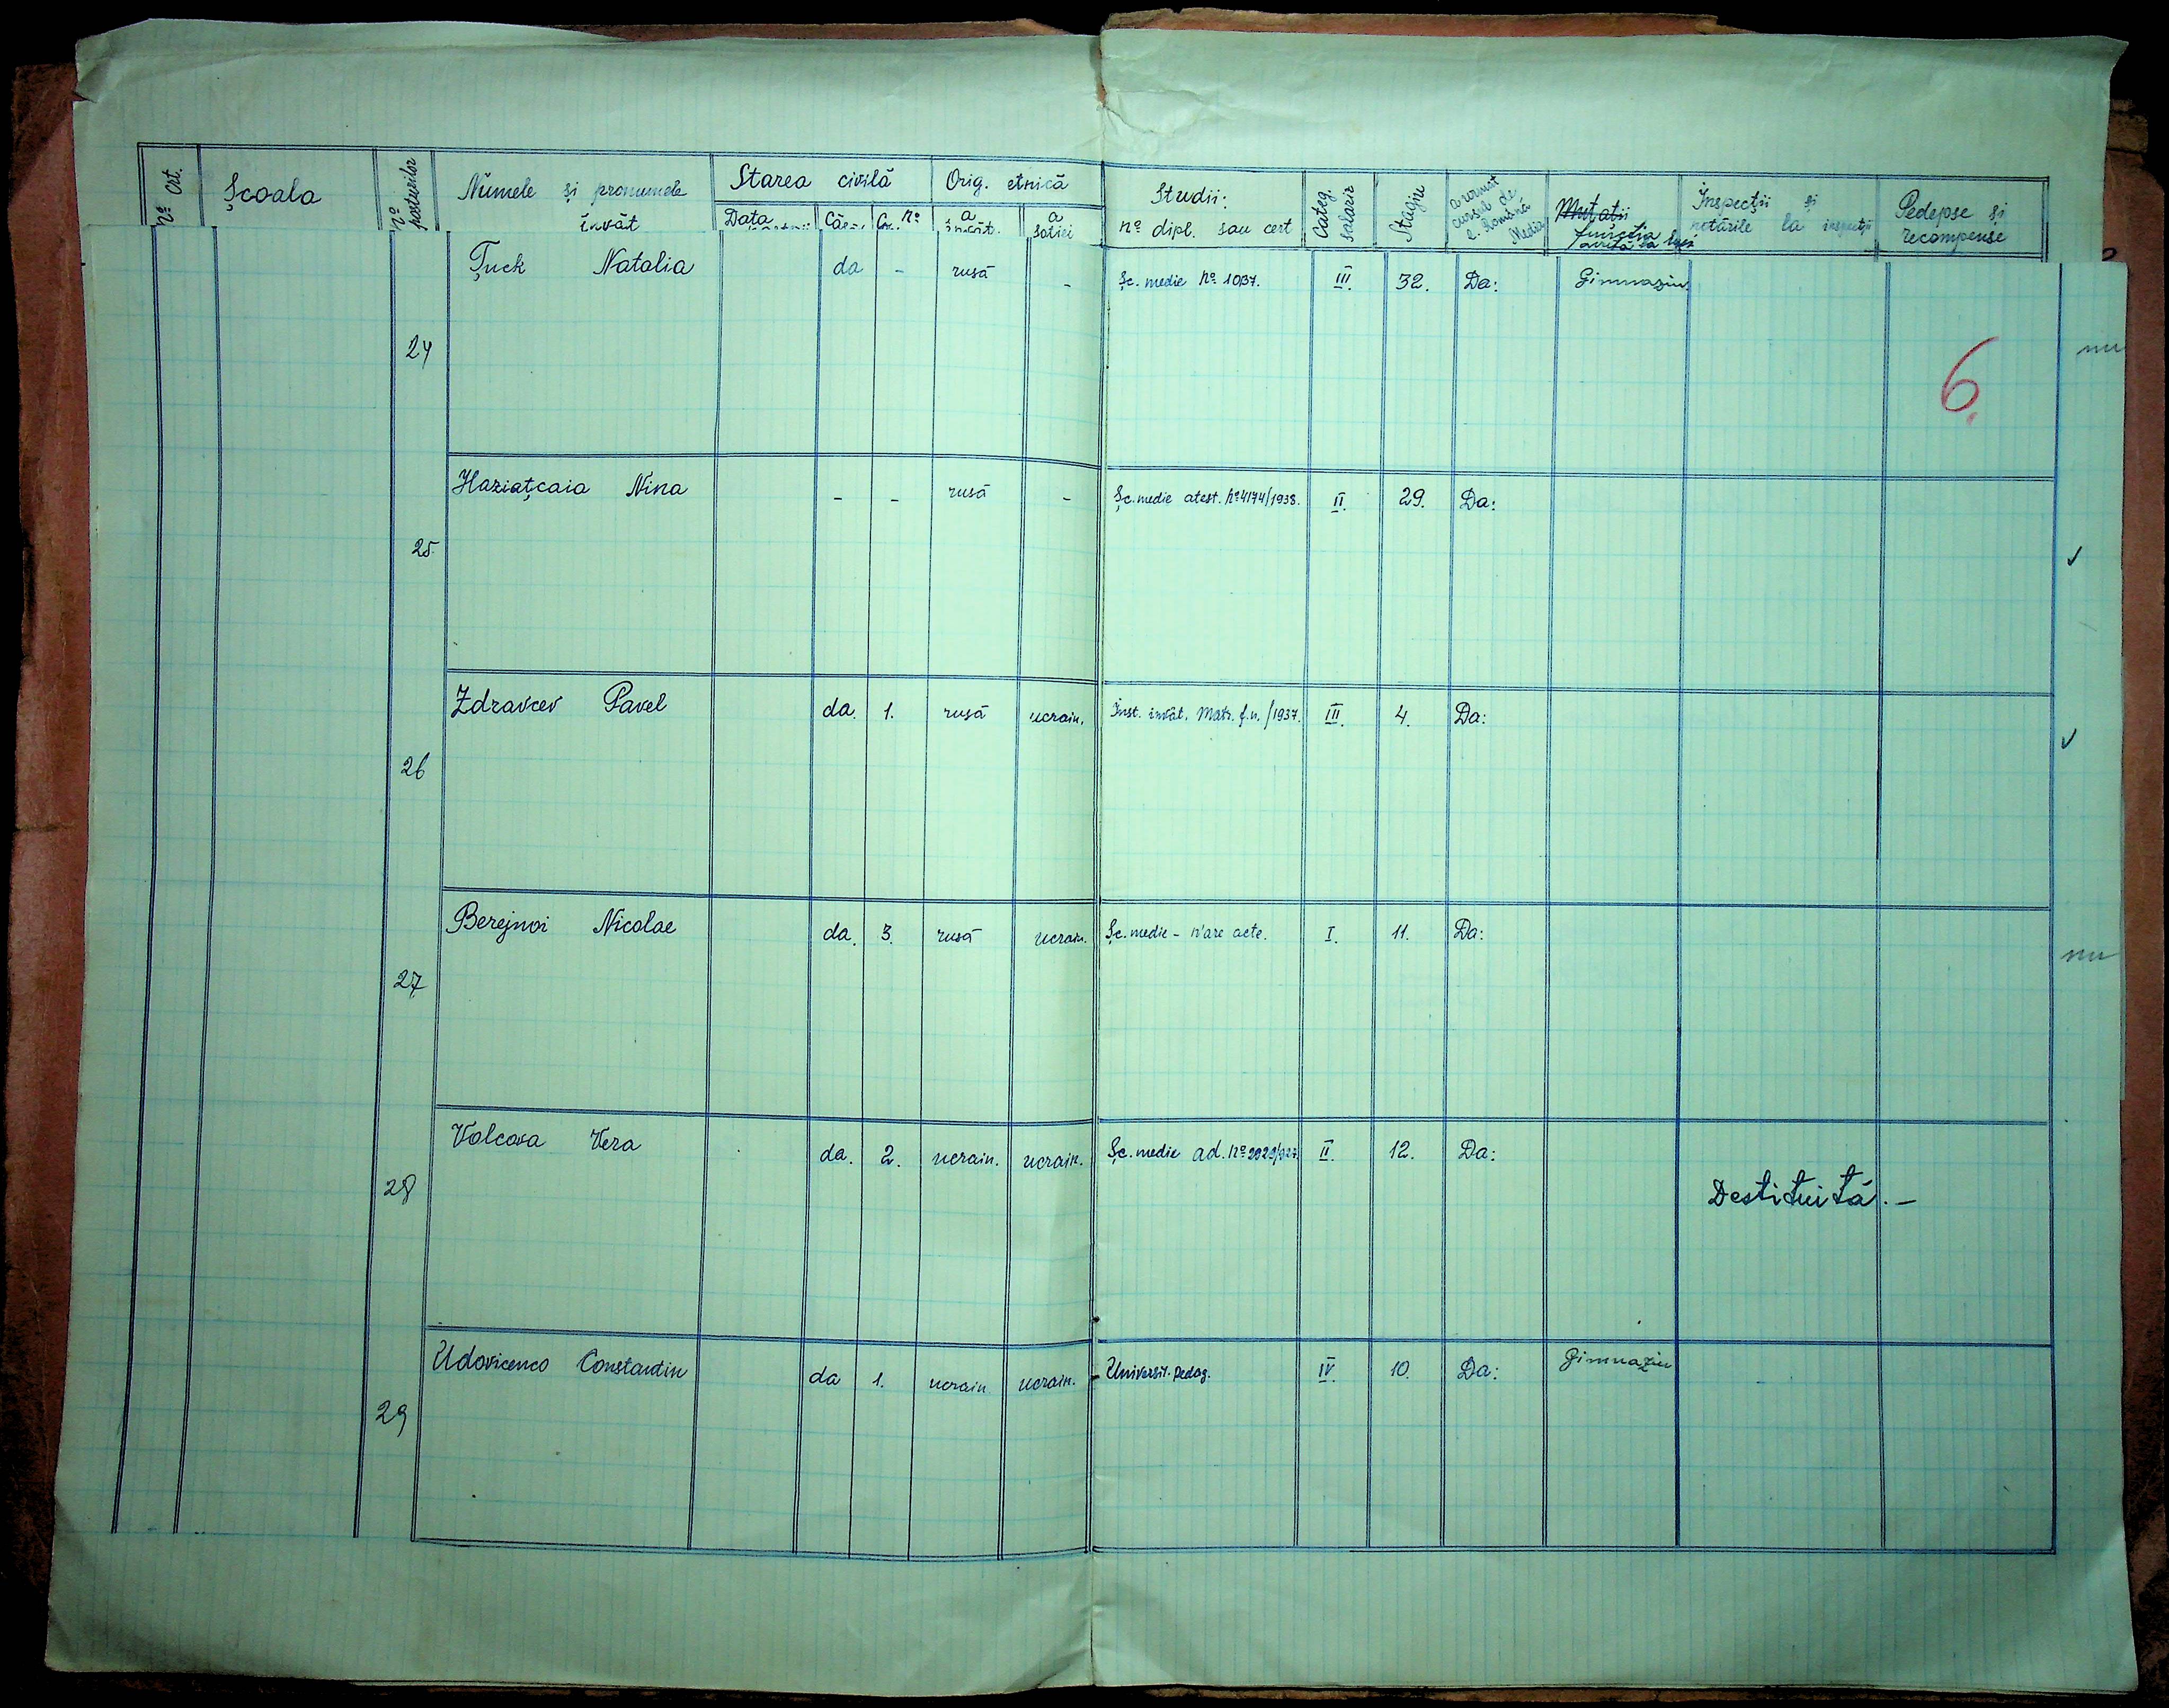 Nº Crt. Școala Nº posturilor Numele și pronumele învăt Starea civilă Orig. etnică Studii: nº dipl. sau cert Categ. salarir Stagiu a urmat cursul de l. Română Media Mutații funcția Inspecții și notările la inspecții Pedepse și recompense
Data Căs. Cop. Nº a învăt. a soției
24 Țuck Natalia da - rusă - Șc. medie Nº 1037. III. 32. Da: Gimnaziu nu
6.
25. Haziațcaia Nina - - rusă - Șc. medie atest. Nº4174/1938. II. 29. Da: ✓
26 Zdravcev Pavel da. 1. rusă ucrain. Inst. învăt. Matr. f.n./1937. III. 4. Da: ✓
27 Berejnoi Nicolae da. 3. rusă ucrain. Șc. medie - n'are acte. I. 11. Da: nu
28 Volcova Vera da. 2. ucrain. ucrain. Șc. medie ad. Nº 2029/927. II. 12. Da:
Destituită. -
29 Udovicenco Constantin da 1. ucrain ucrain. Universit. pedag. IV. 10. Da: Gimnaziu